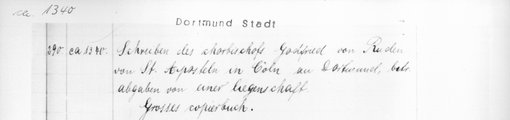 ca. 1340
Dortmund Stadt
290. ca 1340. Schreiben des chorbischofs Godfried von Ruden
von St. Aposteln in Cöln an Dortmund, betr.
abgaben von einer liegenschaft.
Grosses copierbuch.